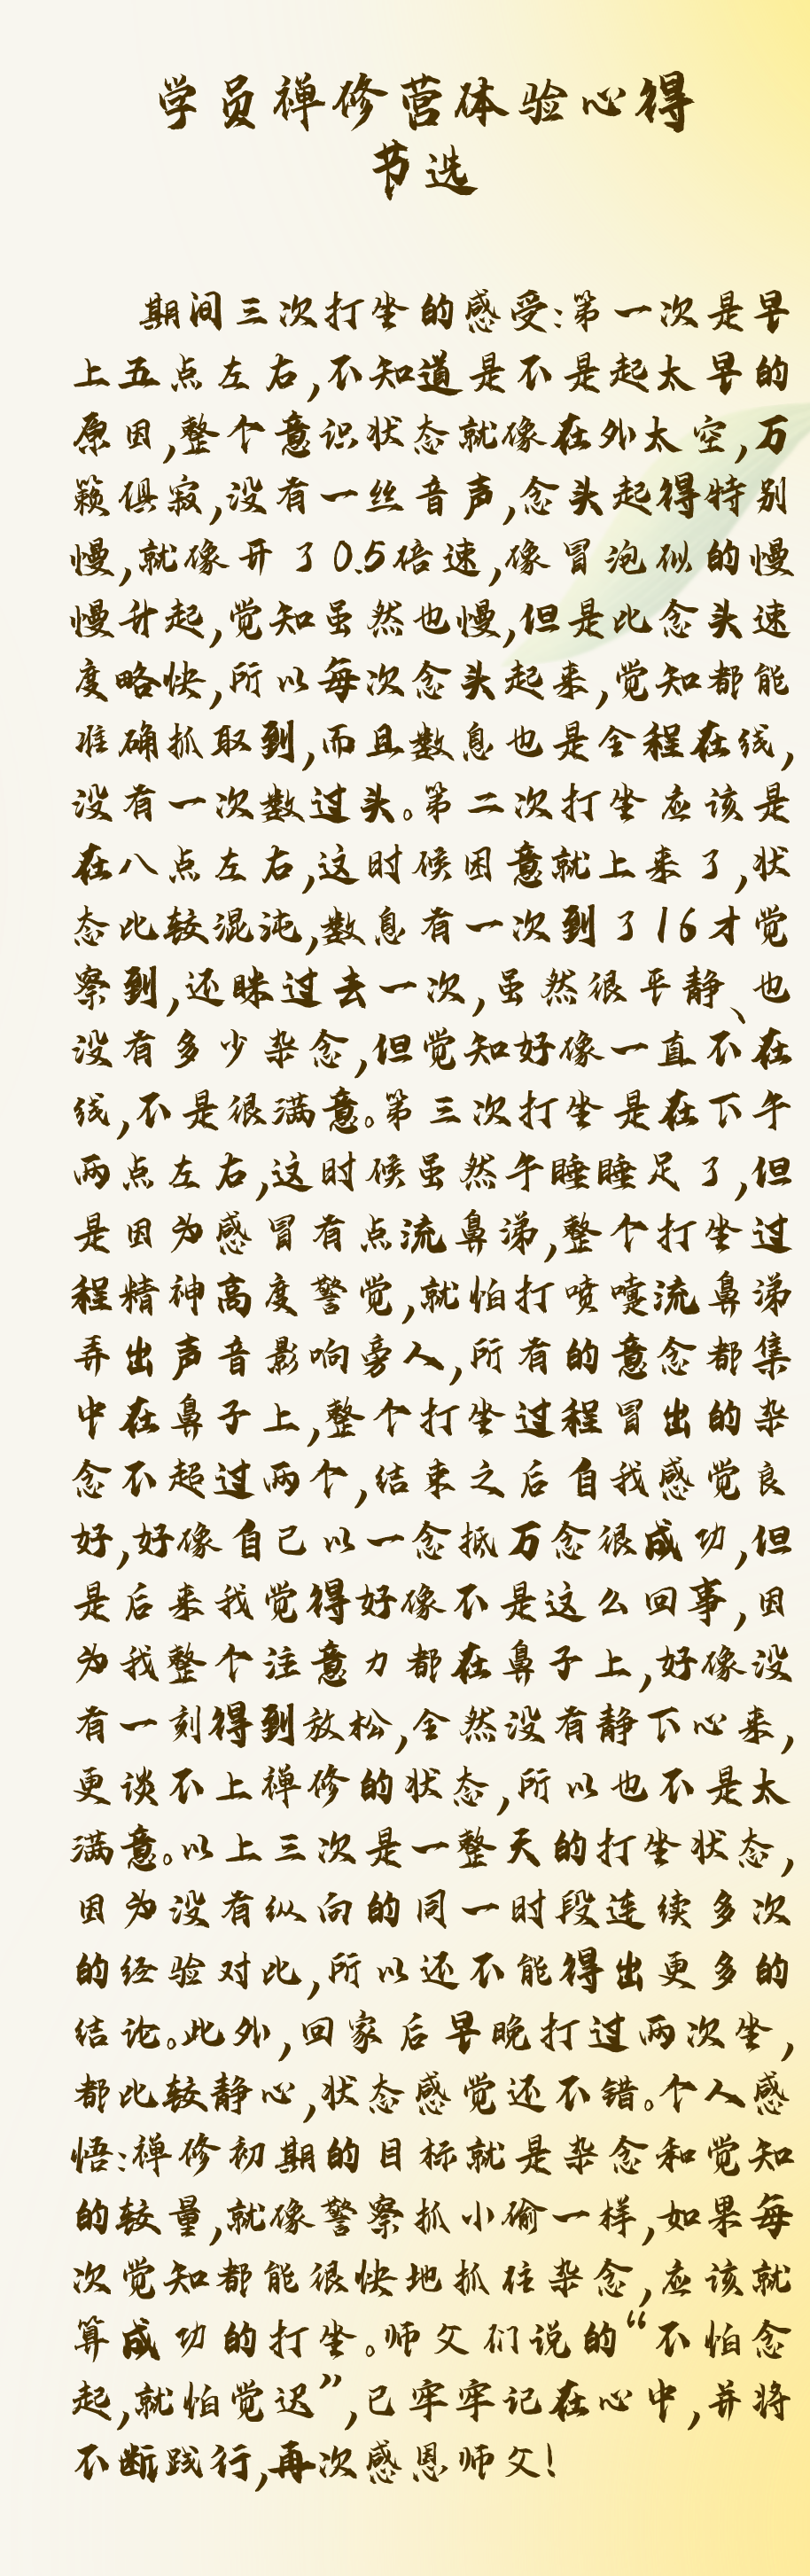 学员禅修营体验心得
节选
期间三次打坐的感受:第一次是早
上五点左右,不知道是不是起太早的
原因,整个意识状态就像在外太空,万
籁俱寂,没有一丝音声,念头起得特别
慢,就像开了0.5倍速,像冒泡似的慢
慢升起,觉知虽然也慢,但是比念头速
度略快,所以每次念头起来,觉知都能
准确抓取到,而且数息也是全程在线,
没有一次数过头。第二次打坐应该是
在八点左右,这时候困意就上来了,状
态比较混沌,数息有一次到了16才觉
察到,还眯过去一次,虽然很平静、也
没有多少杂念,但觉知好像一直不在
线,不是很满意。第三次打坐是在下午
两点左右,这时候虽然午睡睡足了,但
是因为感冒有点流鼻涕,整个打坐过
程精神高度警觉,就怕打喷嚏流鼻涕
弄出声音影响旁人,所有的意念都集
中在鼻子上,整个打坐过程冒出的杂
念不超过两个,结束之后自我感觉良
好,好像自己以一念抵万念很成功,但
是后来我觉得好像不是这么回事,因
为我整个注意力都在鼻子上,好像没
有一刻得到放松,全然没有静下心来,
更谈不上禅修的状态,所以也不是太
满意。以上三次是一整天的打坐状态,
因为没有纵向的同一时段连续多次
的经验对比,所以还不能得出更多的
结论。此外,回家后早晚打过两次坐,
都比较静心,状态感觉还不错。个人感
悟:禅修初期的目标就是杂念和觉知
的较量,就像警察抓小偷一样,如果每
次觉知都能很快地抓住杂念,应该就
算成功的打坐。师父们说的“不怕念
起,就怕觉迟”,已牢牢记在心中,并将
不断践行,再次感恩师父!